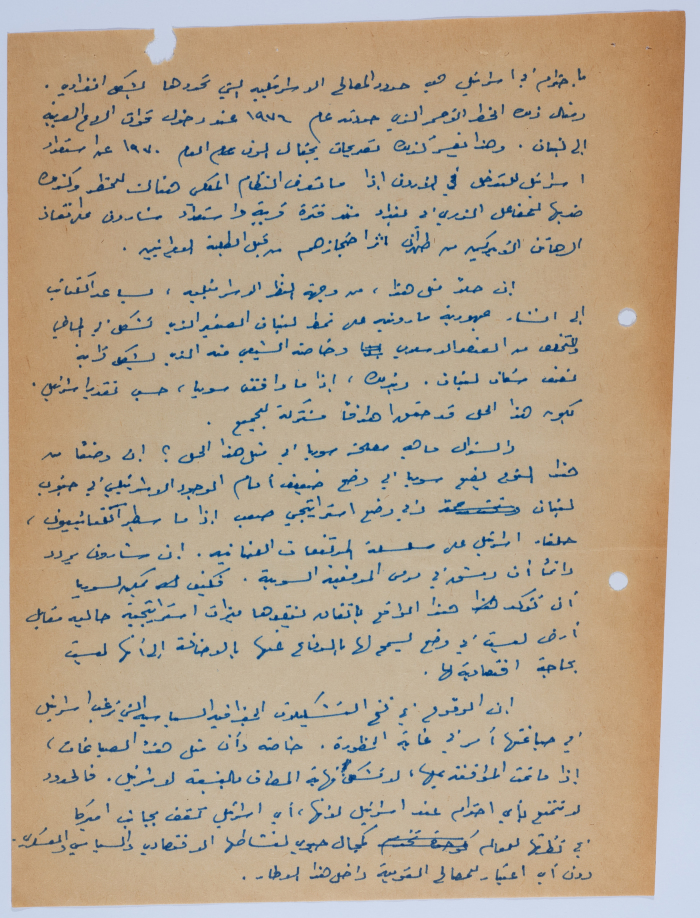 ما احترام في اسرائيل هي حدود المصالح الاسرائيلية التي تحددها بشكل انفرادي .
ومثال ذلك الخط الأحمر الذي حددته عام ١٩٧٦ عند دخول قوات الردع العربية
الى لبنان . وهذا يفسر كذلك تصريحات ييغال الون عام ١٩٧٠ عن استعداد
اسرائيل للتدخل في الاردن اذا ما تعرض النظام الملكي هنالك للخطر وكذلك
ضربها للمفاعل الذري في بغداد منذ فترة قريبة واستعداد شارون على انقاذ
الرهائن الأميركيين من طهران اثر احتجازهم من قبل الطلبة الايرانيين .
ان حلا مثل هذا ، من وجهة النظر الاسرائيلية ، يساعد الكتائب
الى انشاء جمهورية مارونية على نمط لبنان الصغير الذي تشكل في الماضي
والتخلص من العنصر الاسلامي وخاصة الشيعي منه الذي يشكل قرابة
نصف سكان لبنان . وبذلك ، اذا ما وافقت سوريا ، حسب تقدير اسرائيل .
يكون هذا الحل قد حقق اهدافا مشتركة للجميع .
والسؤال ما هي مصلحة سوريا في مثل هذا الحل ؟ ان وضعا من
هذا النوع يضع سوريا في وضع ضعيف أمام الوجود الاسرائيلي في جنوب
لبنان وفي وضع استراتيجي صعب اذا ما سيطر الكتائبيون ،
حلفاء اسرائيل على سلسلة المرتفعات اللبنانية . ان شارون يردد
دائما أن دمشق في مرمى المدفعية السورية . فكيف يمكن لسوريا
أن تؤكد هذا الواقع باتفاق يفقدها ميزات استراتيجية حالية مقابل
أرض ليست في وضع يسمح لها بالدفاع عنها بالاضافة الى أنها ليست
بحاجة اقتصادية لها .
ان الوقوع في فخ التشكيلات الجغرافية السياسية التي ترغب اسرائيل
في صياغتها أمر في غاية الخطورة . خاصة وأن مثل هذه الصياغات ،
إذا ما تمت الموافقة عليها ، لا تشكل نهاية المطاف بالنسبة لاسرائيل . فالحدود
لا تتمتع بأي احترام عند اسرائيل لأنها ، أي اسرائيل تقف بجانب امريكا
في نظرتها للعالم كمجال حيوي لنشاطها الاقتصادي والسياسي والعسكري .
دون أي اعتبار للمصالح القومية داخل هذا الاطار .